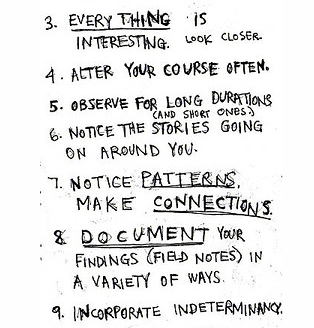 3. EVERY THING IS
INTERESTING. LOOK CLOSER.
4. ALTER YOUR COURSE OFTEN.
5. OBSERVE FOR LONG DURATIONS
(AND SHORT ONES.)
6. NOTICE THE STORIES GOING
ON AROUND YOU.
7. NOTICE PATTERNS,
MAKE CONNECTIONS.
8. DOCUMENT YOUR
FINDINGS (FIELD NOTES) IN
A VARIETY OF WAYS.
9. INCORPORATE INDETERMINANCY.